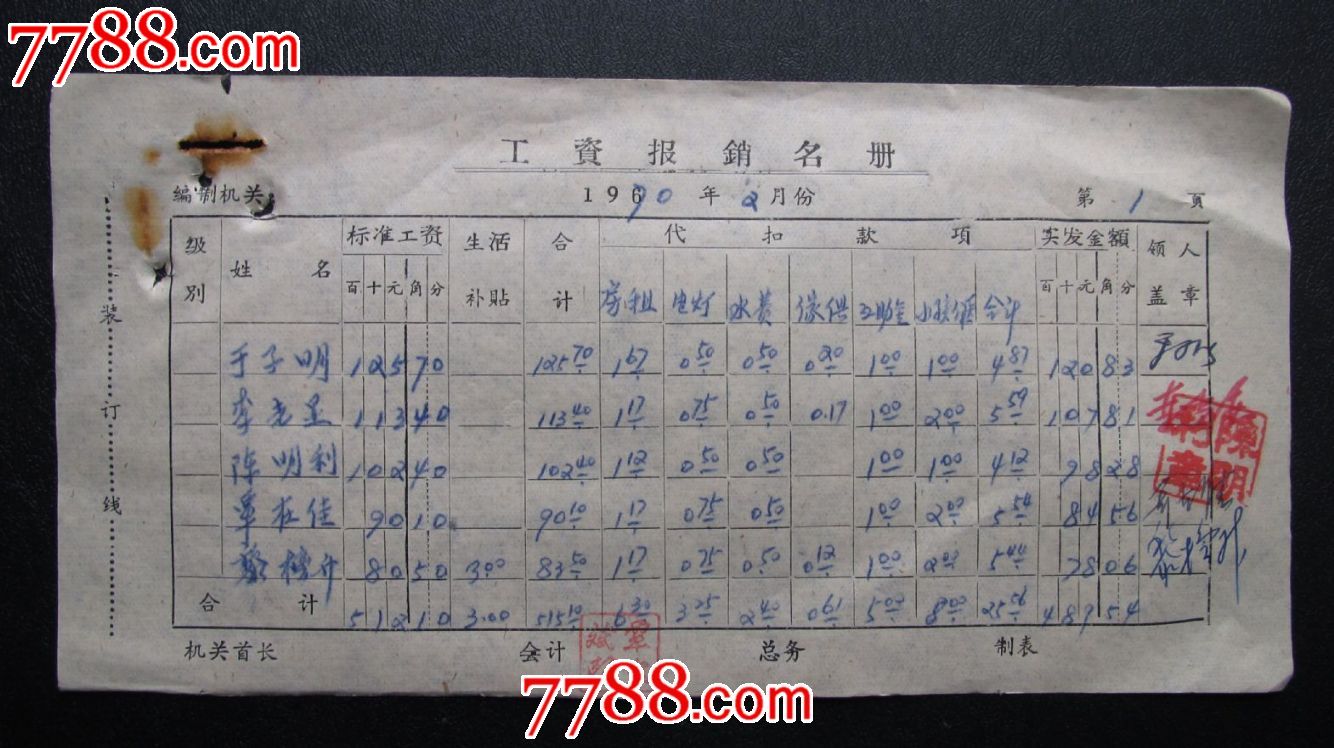 7788.com
7788.com
工資报銷名册
编制机关 1960 70年2月份 第1頁
级别 姓名 标准工资 生活补贴 合计 代扣款項 实发金額 领人盖章
百十元角分 房租 电灯 水费 傢俱 互助金 合计 百十元角分
于子明 12570 125.70 1.67 0.50 0.50 0.20 1.00 1.00 4.87 12083
李 11340 113.40 1.17 0.75 0.50 0.17 1.00 2.00 5.59 10781
陈明利 10240 102.40 1.12 0.50 0.50 1.00 1.00 4.12 9828
9010 90.10 1.17 0.75 0.50 1.00 2.00 5.54 8456
8050 3.00 83.50 1.17 0.75 0.50 0.12 1.00 2.00 5.44 7806
合计 51210 3.00 515.10 6.30 3.25 2.40 0.61 5.00 8.00 25.56 48754
机关首长 会计 总务 制表
装订线
陳明利章
7788.com